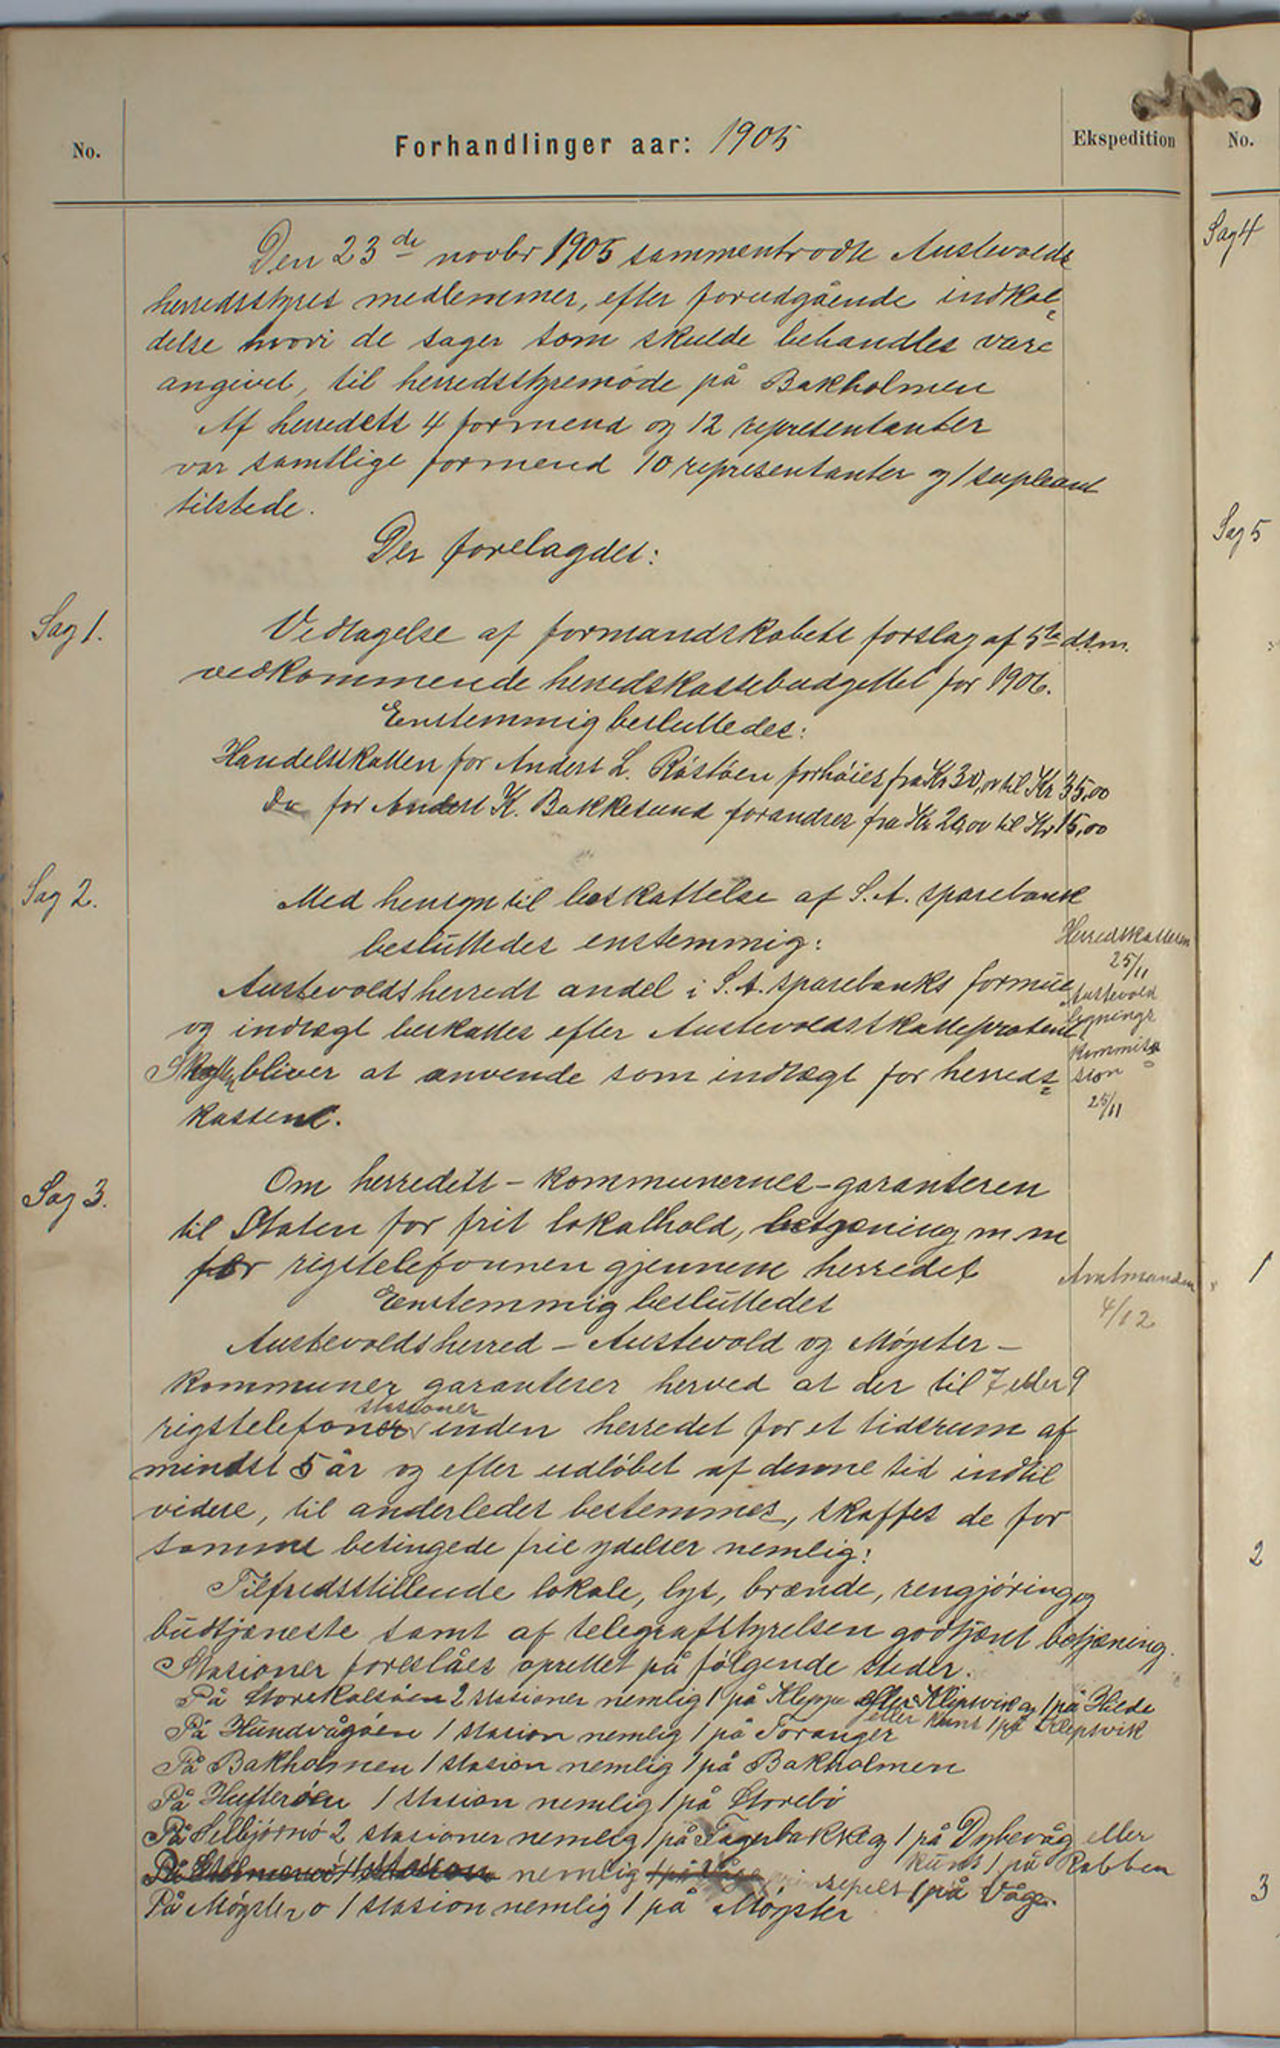 No.
Forhandlinger aar: 1905
Ekspedition
No.
Den 23de novbr 1905 sammentrådte Austevolds
herredsstyres medlemmer, efter forudgående indkal=
delse hvori de sager som skulde behandles vare
angivet, til herredsstyremøde på Bakholmen
Af herredets 4 formend og 12 representanter
var samtlige formend 10 representanter og 1 supleant
tilstede.
Der forelagdes:
Sag 1.
Vedtagelse af formandskabets forslag af 5te dsm.
vedkommende herredskassebudgettet for 1906.
Enstemmig besluttedes:
Handelsskatten for Anders L. Røstøen forhøies fra Kr 30,00 til Kr 35,00
Do for Anders K. Bakkesund forandres fra Kr 20,00 til Kr 15,00
Sag 2.
Med hensyn til beskattelse af S. A. sparebank
besluttedes enstemmig:
Austevoldsherreds andel i S. A. sparebanks formue
og indtægt beskattes efter Austevoldsskatteprocent
Skatten bliver at anvende som indtægt for herreds=
kassen.
Herredskasseren
25/11
Austevold
lignings
kommis=
sion
25/11
Sag 3.
Om herredets - kommunernes - garanteren
til Staten for frit lokalhold, betjening m.m
for rigstelefonnen gjennem herredet
Enstemmig besluttedes
Austevoldsherred - Austevold og Møgster -
kommuner garanterer herved at der til 7 eller 9
stasioner
rigstelefoner inden herredet for et tidsrum af
mindst 5 år og efter udløbet af denne tid indtil
videre, til anderledes bestemmes, skaffes de for
samme betingede frie ydelser nemlig:
Tilfredsstillende lokale, lys, brænde, rengjøring og
budtjeneste samt af telegrafstyrelsen godkjent betjæning.
Stasioner foreslåes oprettet på følgende steder.
På Storekalsøen 2 stasioner nemlig 1 på Kleppe eller Klepsvik og 1 på Hilde
eller kuns 1 på Klepsvik
På Hundvågøen 1 stasion nemlig 1 på Toranger
På Bakholmen 1 stasion nemlig 1 på Bakholmen
På Hufterøen 1 stasion nemlig 1 på Storebø
På Selbjørnø 2 stasioner nemlig 1 på Fagerbakke og 1 på Dybevåg eller
kuns 1 på Rabben
nemlig 1 på Våge
På Møgsterø 1 stasion nemlig 1 på Møgster
Amtmanden
4/12
Sag 4
Sag 5
1
2
3